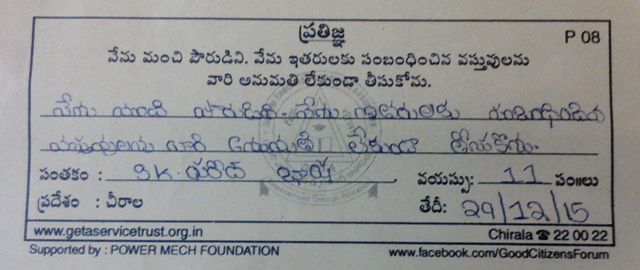 ప్రతిజ్ఞ
P 08
నేను మంచి పౌరుడిని. నేను ఇతరులకు సంబంధించిన వస్తువులను
వారి అనుమతి లేకుండా తీసుకోను.
నేను మంచి పౌరుడిని. నేను ఇతరులకు
వారి అనుమతి లేకుండా తీసుకొను.
సంతకం : SK. ఫరీద్ బాషా వయస్సు: 11 సం॥లు
ప్రదేశం : చీరాల తేదీ: 29/12/15
www.getaservicetrust.org.in Chirala ☎ 22 00 22
Supported by : POWER MECH FOUNDATION www.facebook.com/GoodCitizensForum